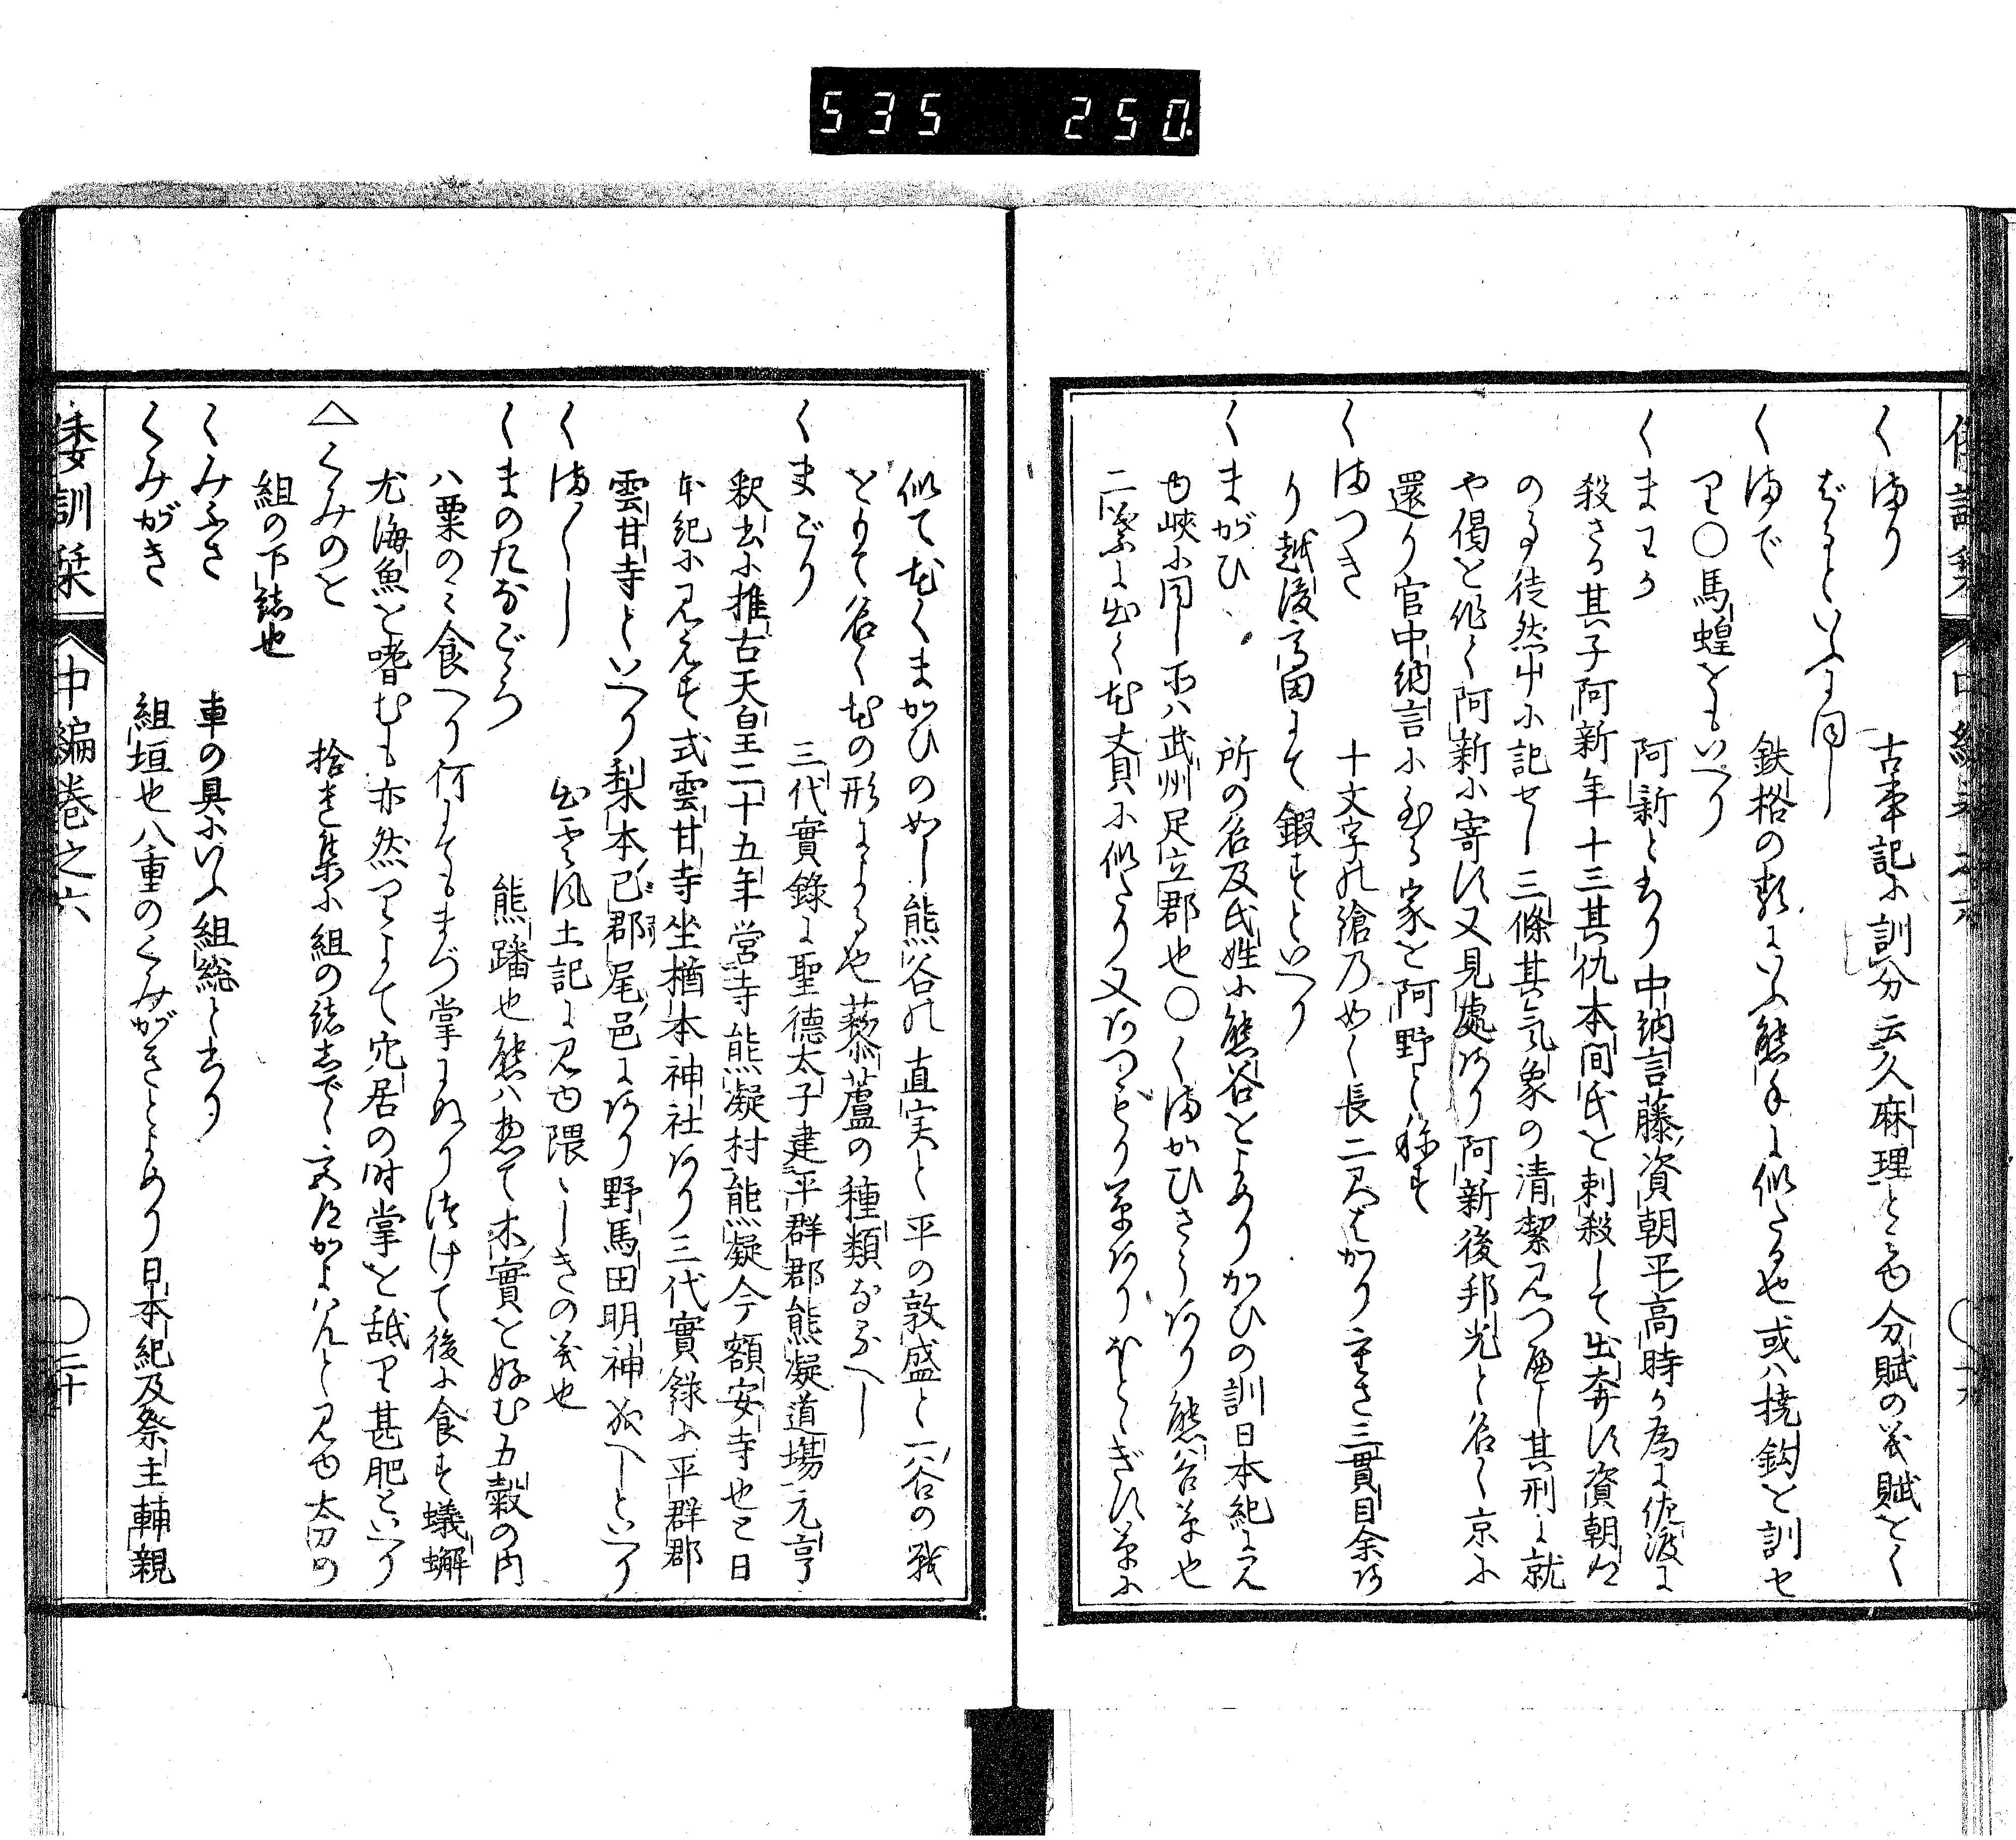 535 250.
くまり 古事記に訓分云久麻理と見ゆ分賦の義賦をく
ばるといふに同し
くまで 鉄搭の類にいふ熊手に似たる也或ハ撓鈎と訓せ
り〇馬蝗ともいへり
くまわか 阿新と書り中納言藤資朝平高時か為に佐渡に
殺さる其子阿新年十三其仇本間氏を刺殺して出奔す資朝は
のる徒然草に記せし三條其気象の清潔見つへし其刑に就
や偈を作て阿新に寄す又見處あり阿新後邦光と名く京に
還り官中納言に至る家を阿野と称す
くまつき 十文字の鎗乃如く長二尺はかり重さ三貫目余あ
り越後高田にて鍜すといへり
くまがひ 所の名及氏姓に熊谷をよめりかひの訓日本紀に見
ゆ峡に同し所ハ武州足立郡也〇くまがひさうあり熊谷草也
二葉に出て花大貝に似たり又あつもり草ありほとゝぎす草に
似て花くまがひの如し熊谷の直実と平の敦盛と一谷の戦
をもて名く花の形による也藜蘆の種類なるへし
くまごり 三代實錄に聖德太子建平群郡熊凝道場元亨
釈書に推古天皇二十五年営寺熊凝村熊凝今額安寺也と日
本紀に見えす式雲甘寺坐楢本神社あり三代實錄に平群郡
雲甘寺といへり梨本已郡尾邑にあり野馬田明神成へしといへり
くまくし 出雲風土記に見ゆ隈々しきの義也
くまのたなごゝろ 熊蹯也熊ハ惣て木實を好む五穀の内
ハ粟のミ食へり何にてもまづ掌にぬり付けて後に食す蟻蠏
尤海魚を嗜むも亦然りよて穴居の時掌を舐り甚肥といへり
△くみのを 拾遺集に組の緒しでゝ交道かよハんと見ゆ太刀の
組の下緒也
くみふさ 車の具にいふ組総と書り
くみがき 組垣也八重のくみがきとよめり日本紀及祭主輔親
倭訓栞 中編巻之六 〇二十